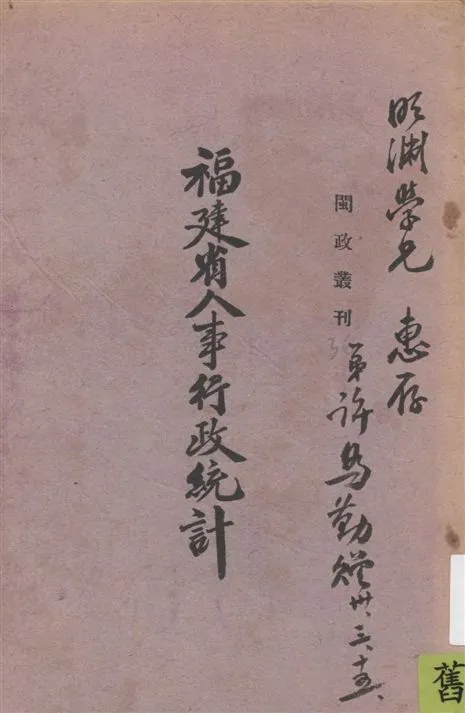 明渊學兄 惠存
閩政叢刊
弟許為勤贈 卅、三、十五、
福建省人事行政統計
舊